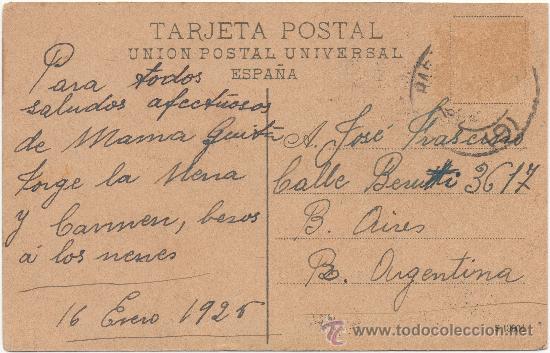 TARJETA POSTAL
UNION POSTAL UNIVERSAL
ESPAÑA
Para todos
saludos afectuosos
de Mama
Jorge la Nena
y Carmen, besos
á los nenes
16 Enero 1926
A. José
Calle Berutti 3617
B. Aires
B. Argentina
todocoleccion
www.todocoleccion.net